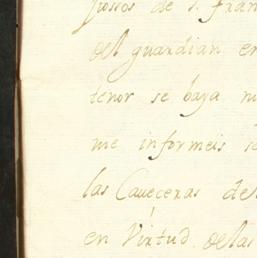 de S. Fran
del guardian en
tenor se baya
me informeis
las Caueceras de
en Virtud. de las